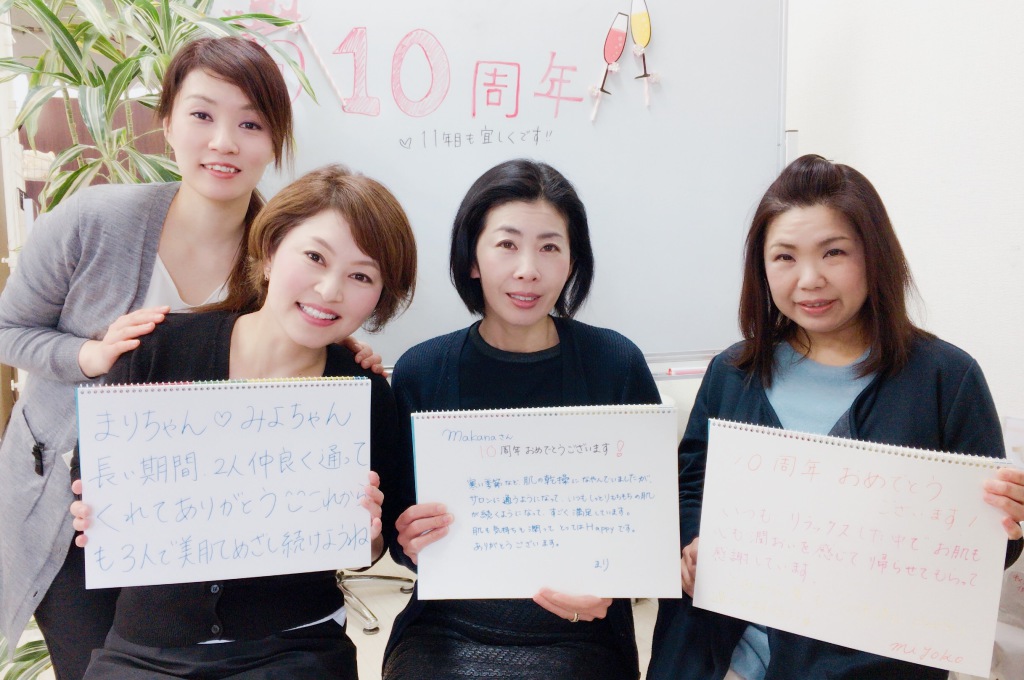 10周年
♡11年目も宜しくです!!
まりちゃん♡みよちゃん
長い期間、2人仲良く通って
くれてありがとう これから
も3人で美肌めざし続けようね
makanaさん
10周年おめでとうございます!
寒い季節など、肌の乾燥になやんでいましたが、
サロンに通うようになって、いつもしっとりもちもちの肌
が続くようになって、すごく満足しています。
肌も気持ちも潤って とってもHappyです。
ありがとうございます。
まり
0周年 おめでとう
ございます!
いつも、リラックスした中で お肌も
心も 潤おいを感じて 帰らせてもらって
感謝しています
miyoko